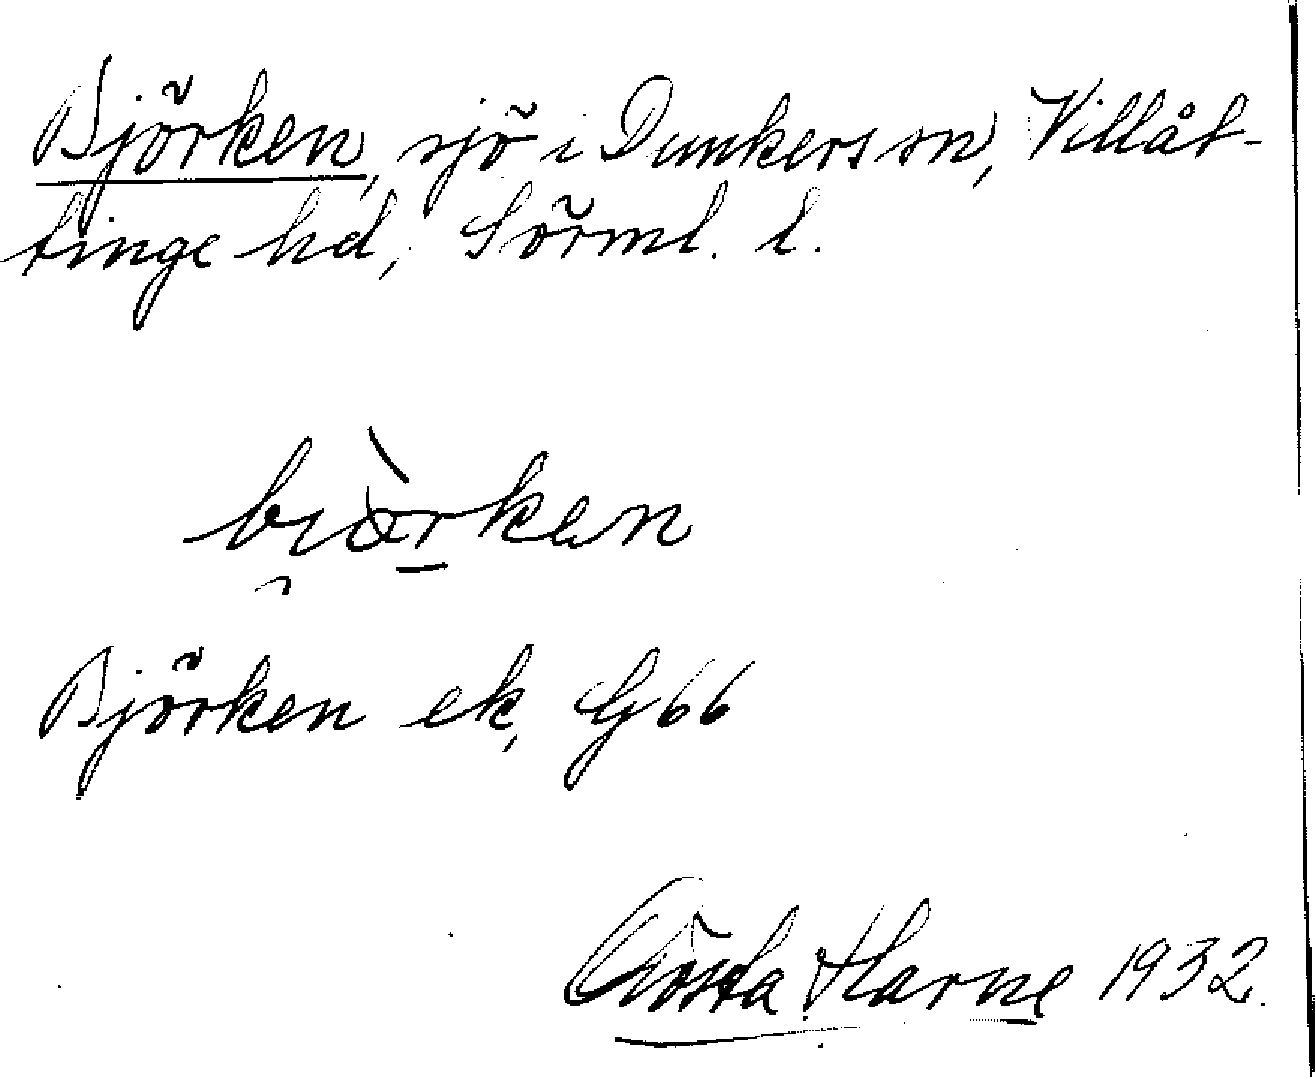 Björken, sjö i Dunkers sn, Villåt-
tinge hd, Sörml. l.
Björken ek, G66
Gösta Harne 1932.